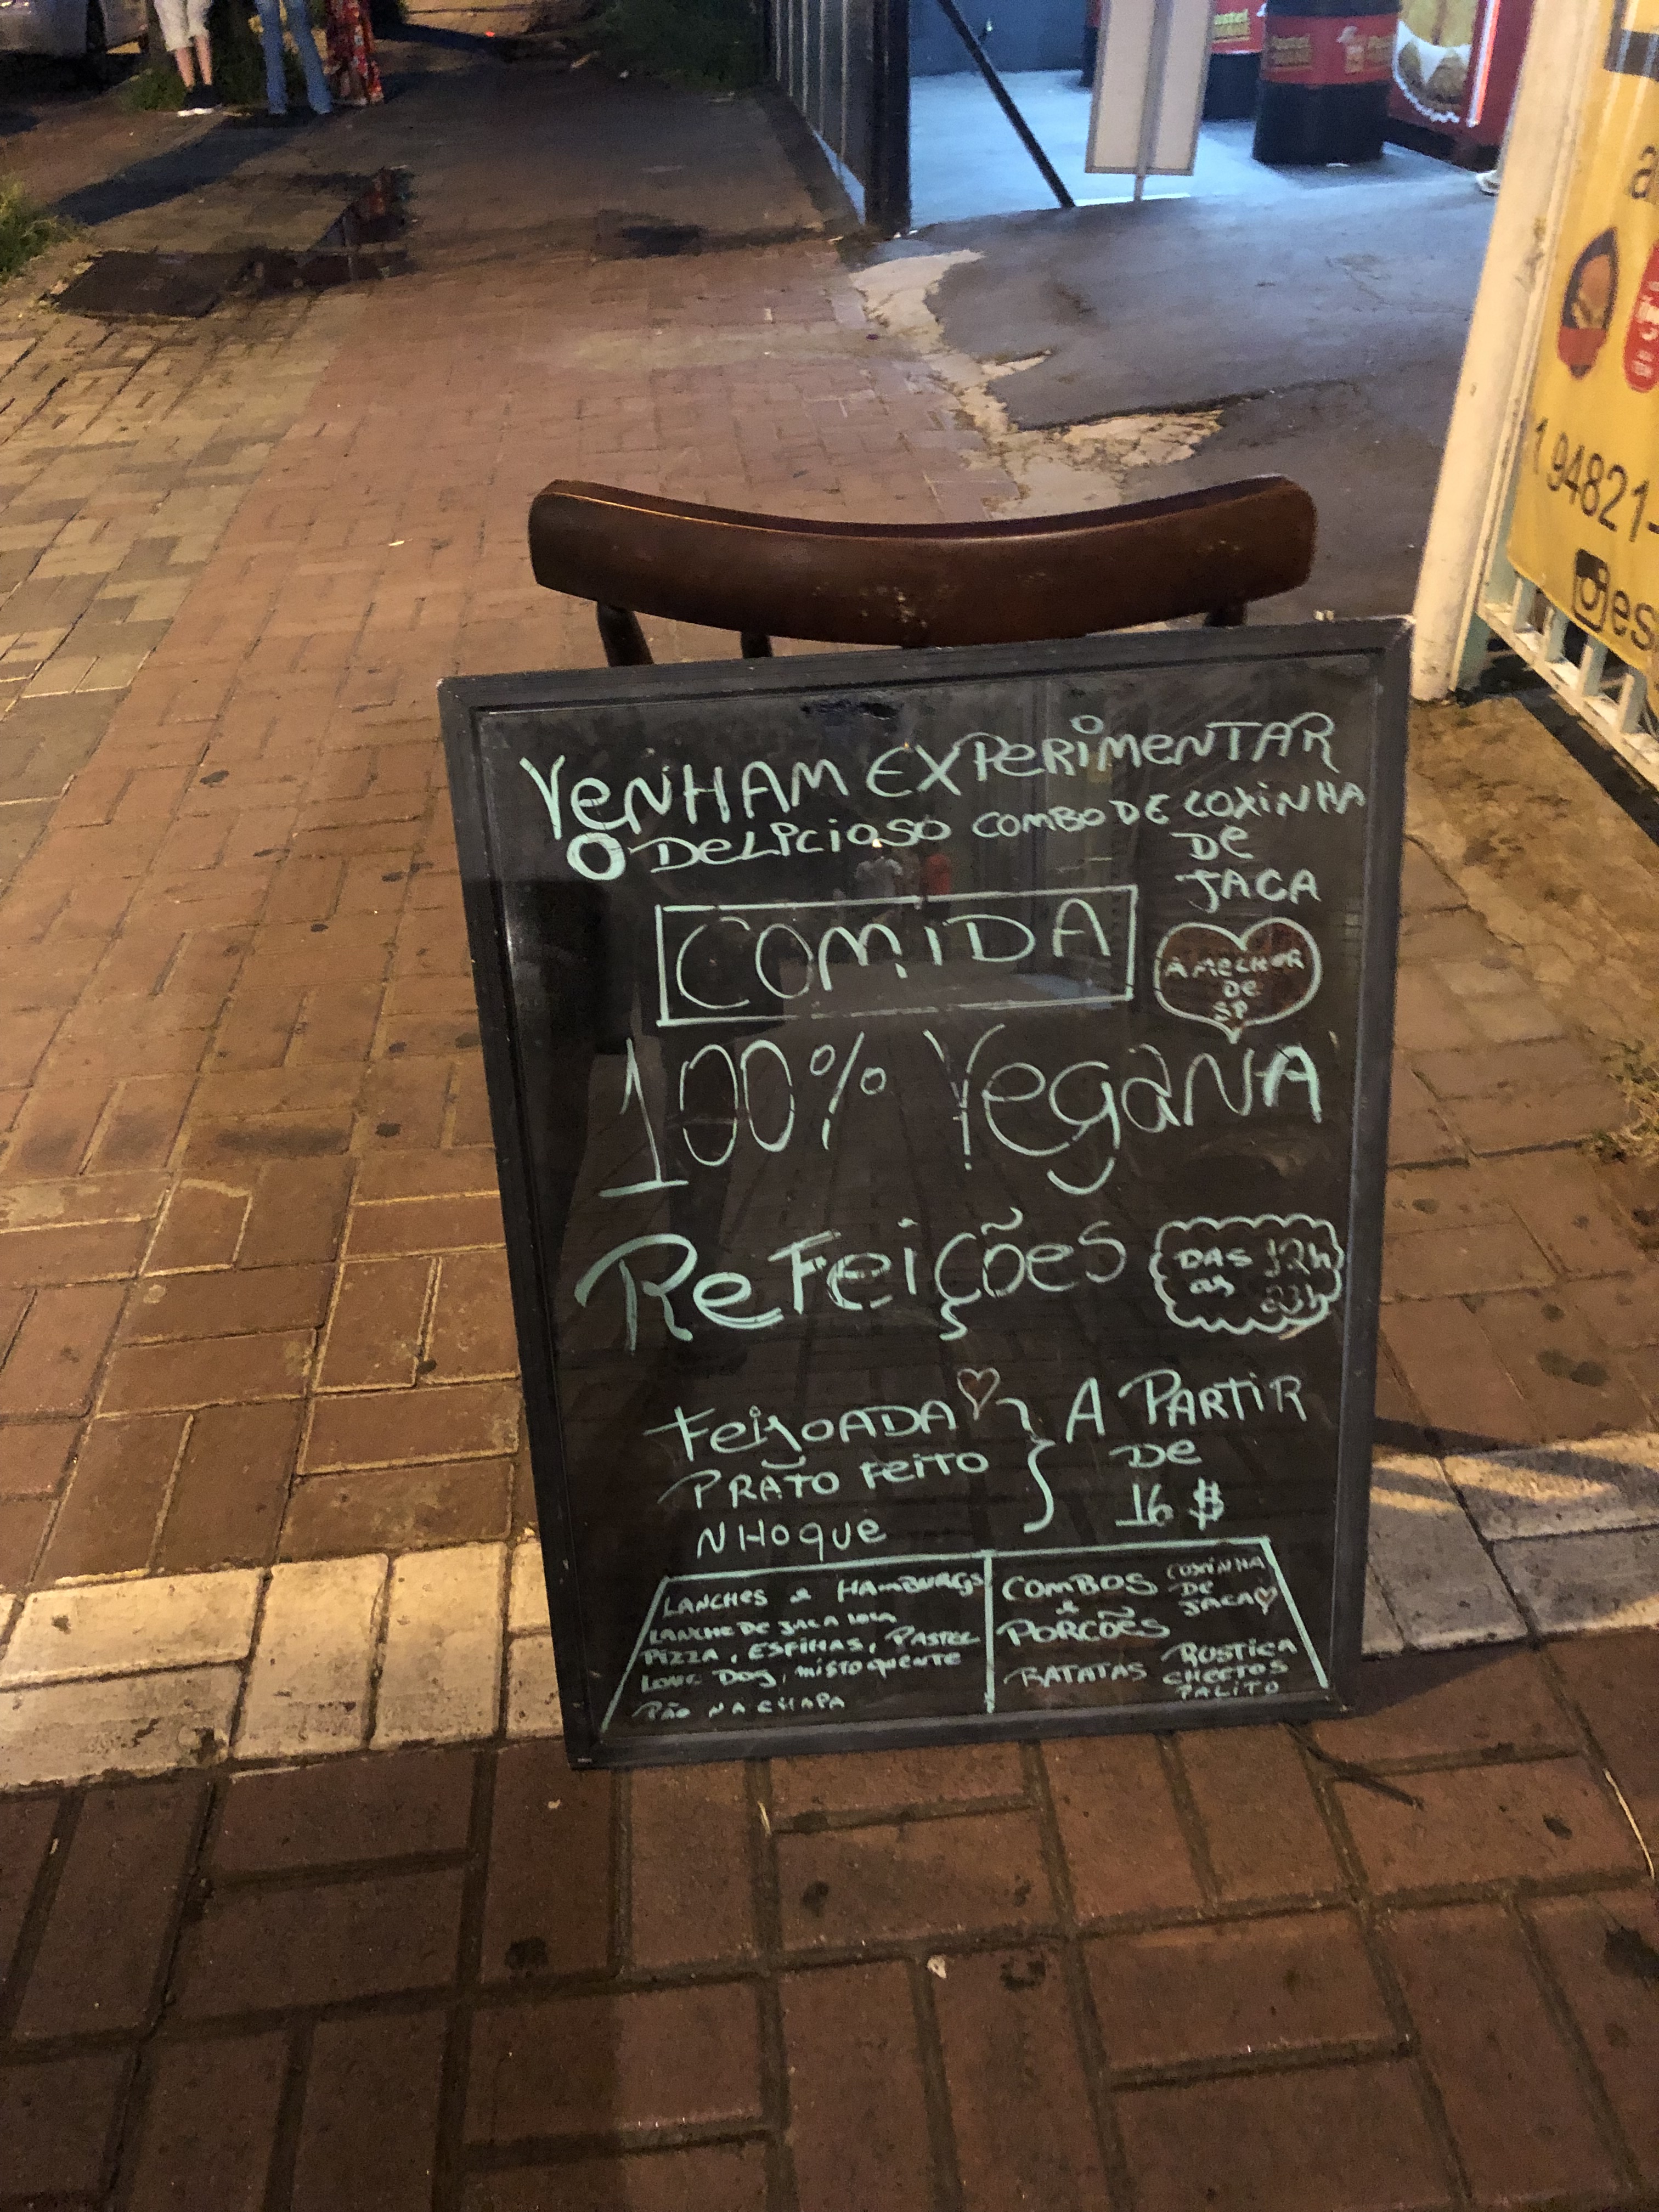 VENHAM EXPERIMENTAR
O DELICIOSO COMBO DE COXINHA
DE
JACA
COMIDA
A MELHOR
DE
SP
100% VEGANA
REFEIÇÕES
DAS 12h
as 23h
FEIJOADA
PRATO FEITO
NHOQUE
A PARTIR
DE
16 $
LANCHES & HAMBURGS
LANCHE DE JACA
PIZZA, ESFIHAS, PASTEL
DOG, MISTO QUENTE
PÃO NA CHAPA
COMBOS
&
PORCÕES
COXINHA
DE
JACA
BATATAS
RUSTICA
CHEETOS
PALITO
1 94821-
es